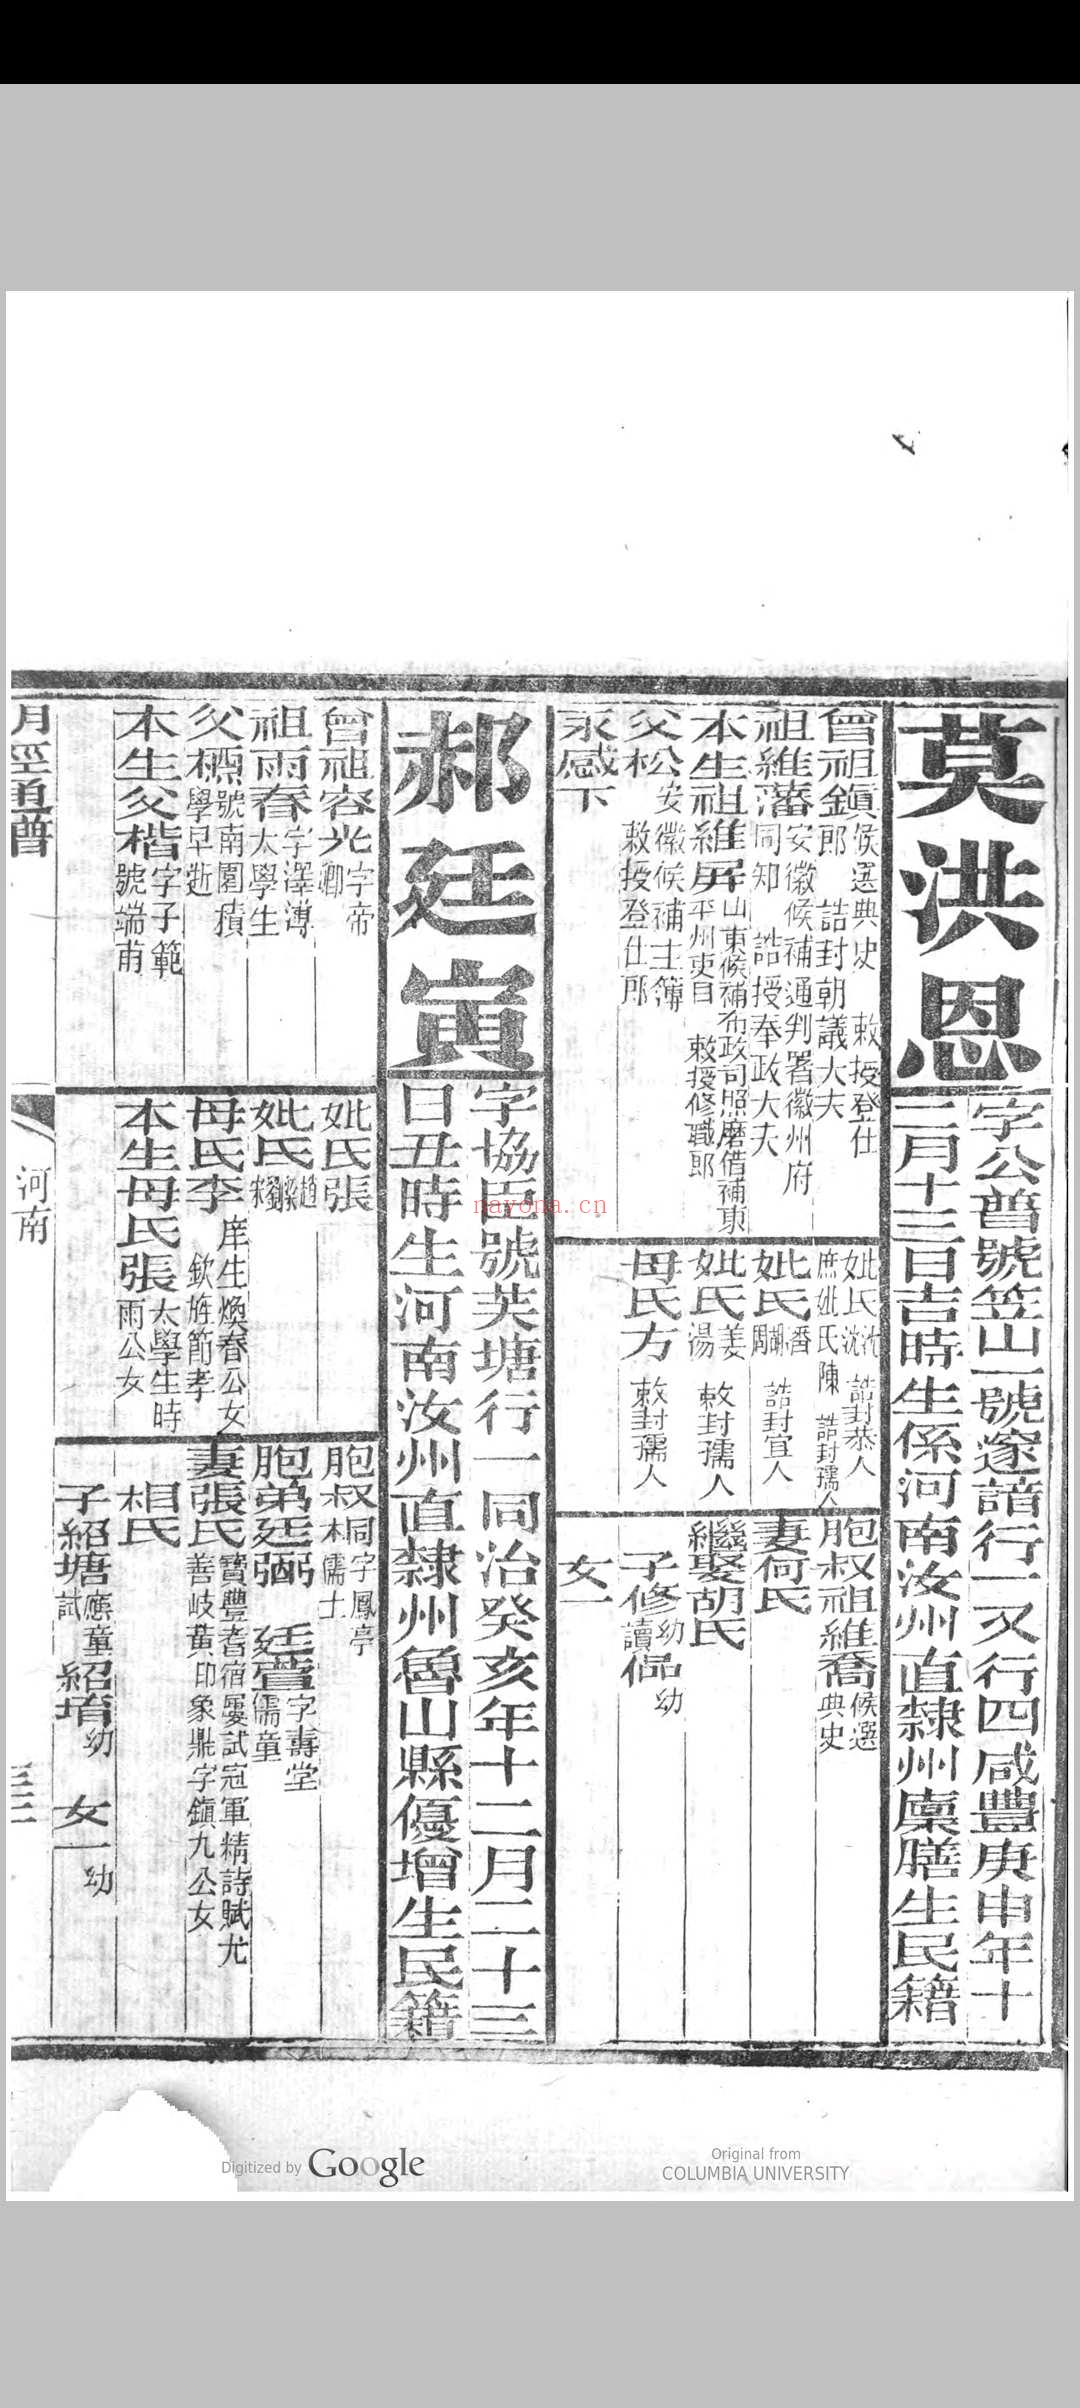 莫洪恩
字公普號笠山一號邃諳行一又行四咸豐庚申年十
二月十三日吉時生係河南汝州直隸州廩膳生民籍
曾祖鎭候選典史 敕授登仕
郎 誥封朝議大夫
祖維藩安徽候補通判署徽州府
同知 誥授奉政大夫
本生祖維屏山東候補布政司照磨借補東
平州吏目 敕授修職郎
父松安徽候補主簿
敕授登仕郎
永感下
妣氏沈 誥封恭人
庶妣氏陳 誥封孺人
妣氏潘胡周 誥封宜人
妣氏姜湯 敕封孺人
母氏方 敕封孺人
胞叔祖維喬候選
典史
妻何氏
繼娶胡氏
子修幼讀 侶幼
女一
郝廷寅
字協臣號芙塘行一同治癸亥年十二月二十三
日丑時生河南汝州直隸州魯山縣優增生民籍
曾祖容光字帝
卿
祖雨春字澤溥
太學生
父標號南圃積
學早逝
本生父楷字子範
號端甫
妣氏張
妣氏趙梁劉宋
母氏李庠生煥春公女
欽旌節孝
本生母氏張太學生時
雨公女
胞叔同字鳳亭
木儒士
胞弟廷弼 廷萱字壽堂
儒童
妻張氏寶豐耆宿屢試冠軍精詩賦尤
善岐黃印象鼎字鎭九公女
相氏
子紹塘應童
試 紹堉幼 女一幼
明經通譜
河南